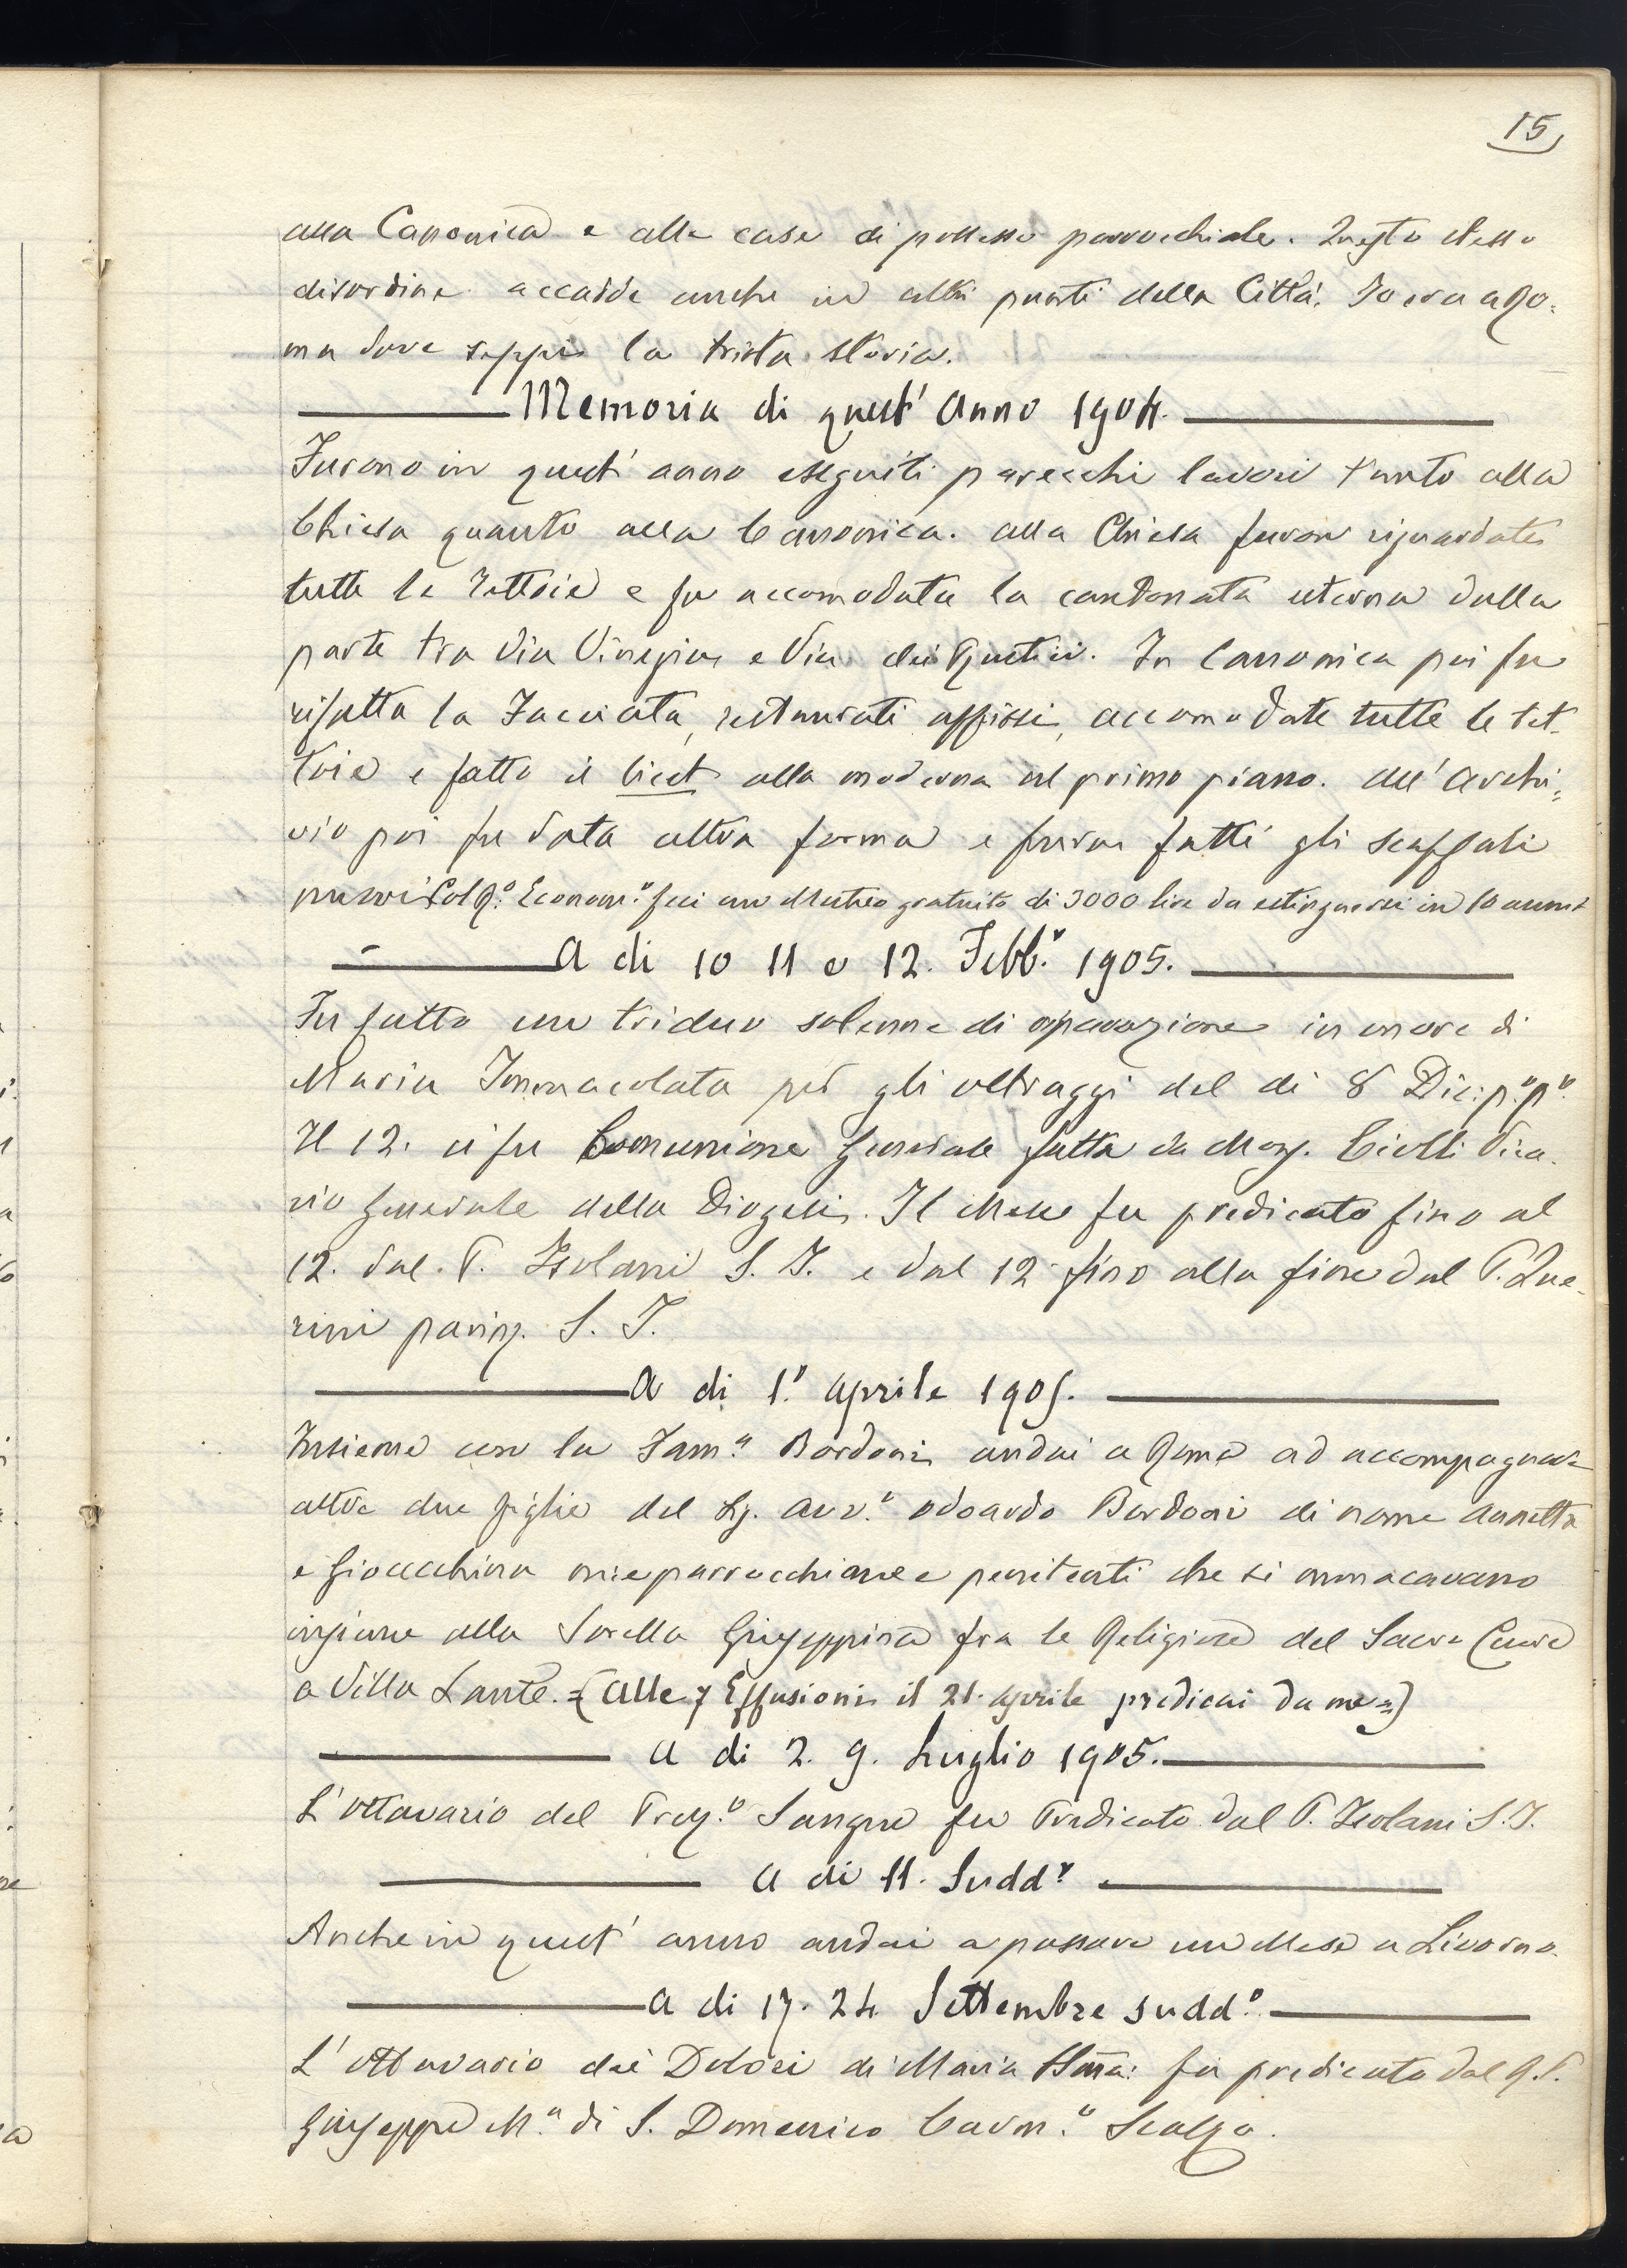 15
alla Canonica e alle case di possesso parrocchiale. Questo stesso
disordine accadde anche in altri punti della Città. Io era a Ro=
ma dove seppi la trista storia.
Memoria di quest' Anno 1904.
Furono in quest' anno eseguiti parecchi lavori tanto alla
Chiesa quanto alla Canonica. Alla Chiesa furon riguardate
tutte le tettoie e fu accomodata la cantonata esterna dalla
parte tra Via Vinegia e Via dei Rustici. In Canonica poi fu
rifatta la Facciata, restaurati affissi, accomodate tutte le tet=
toie e fatto il licet alla moderna al primo piano. All' Archi=
vio poi fu data altra forma e furon fatti gli scaffali
nuovi Col R.º Econom.º feci un Mutuo gratuito di 3000 lire da estinguersi in 10 anni
A di 10 11 e 12. Febb.º 1905.
Fu fatto un triduo solenne di riparazione in onore di
Maria Immacolata per gli oltraggi del di 8 Dic: p.º p.º
Il 12. ci fu Comunione Generale fatta da Mons. Ciolli Vica=
rio Generale della Diogesi. Il Mese fu predicato fino al
12. dal P. Isolani S. I. e dal 12 fino alla fine dal P. Que=
rini S. I.
A di 1.º Aprile 1905.
Insieme con la Fam.a Bordoni andai a Roma ad accompagnare
altre due figlie del Sig. Avv.º Odoardo Bordoni di nome Annetta
e Gioacchina mie parrocchiane e penitenti che si monacavano
insieme alla Sorella Giuseppina fra le Religiose del Sacro Cuore
a Villa Lante. = (Alle 7 Effusioni il 21. Aprile predicai da me =)
A di 2. 9. Luglio 1905.
L' Ottavario del Prez.º Sangue fu Predicato dal P. Isolani S. I.
A di 11. Sudd.º
Anche in quest' anno andai a passare un Mese a Livorno.
A di 17. 24 Settembre sudd.º
L' Ottavario dei Dolori di Maria SSma: fu predicato dal R. P.
Giuseppe M.a di S. Domenico Carm.º Scalzo.